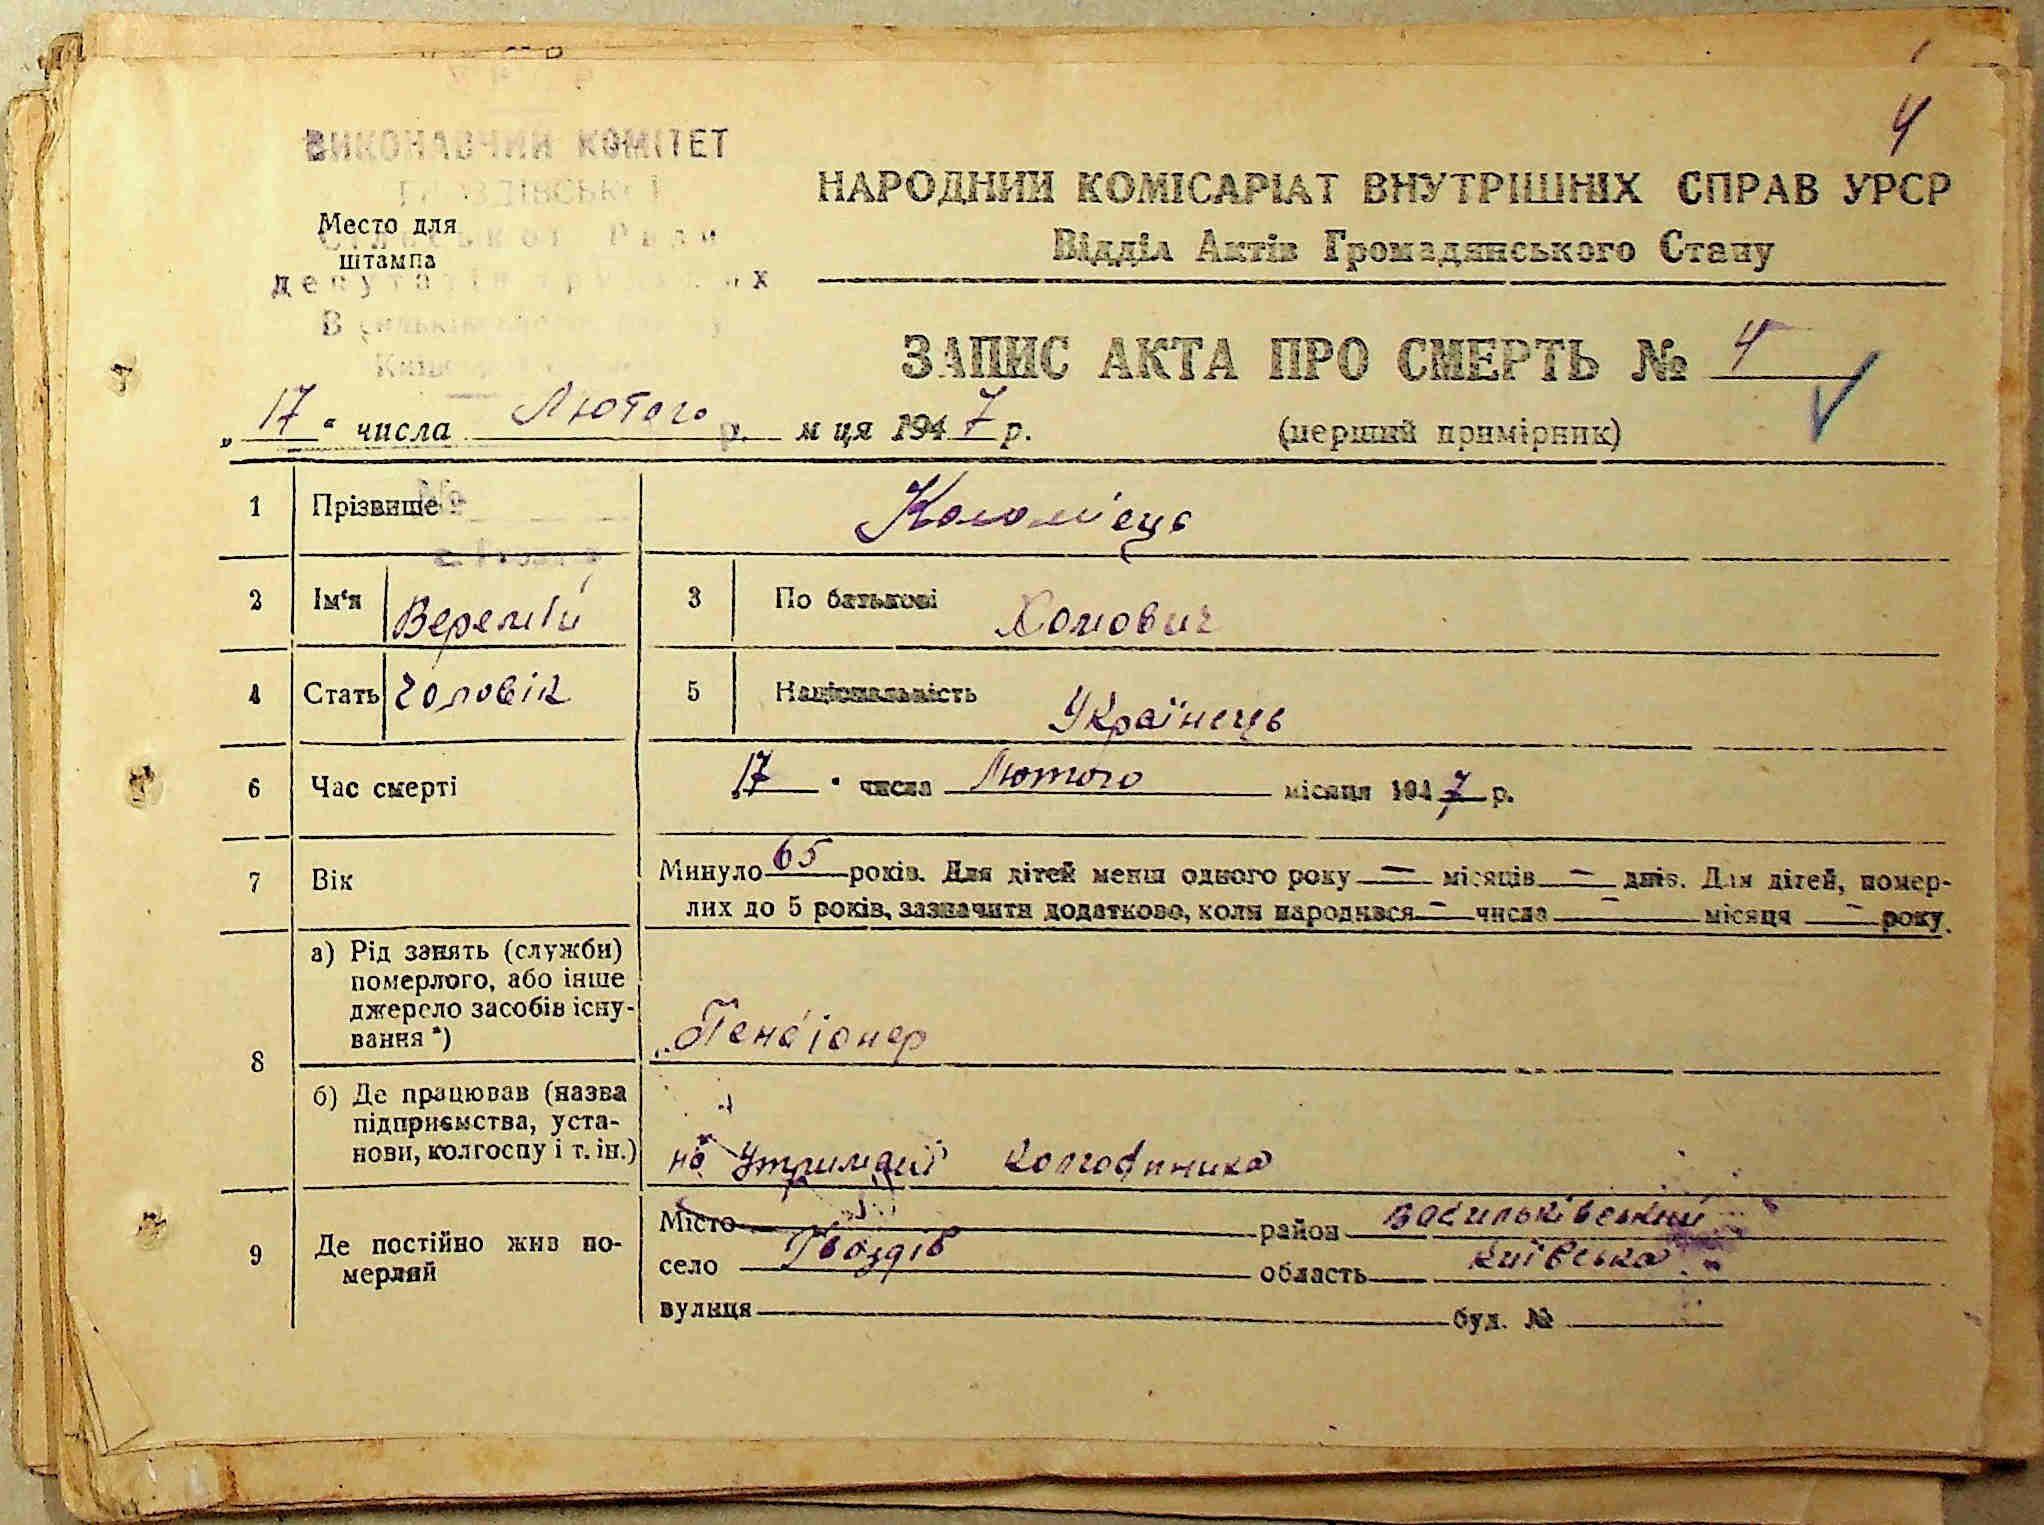 4
ВИКОНАВЧИЙ КОМІТЕТ
НАРОДНИЙ КОМІСАРІАТ ВНУТРІШНІХ СПРАВ УРСР
Место для
штампа
Сільської Ради
депутатів трудящих
Відділ Актів Громадянського Стану
ЗАПИС АКТА ПРО СМЕРТЬ № 4
„17“ числа Лютого р. м ця 1947 р.
(перший примірник)
1 Прізвище Коломієць
2 Ім‘я Веремій 3 По батькові Хомович
4 Стать чоловік 5 Національність Українець
6 Час смерті 17 " числа Лютого місяця 1947 р.
7 Вік Минуло 65 років. Для дітей менш одного року — місяців — днів. Для дітей, помер-
лих до 5 років, зазначити додатково, коли народився — числа — місяця — року.
8 а) Рід занять (служби)
померлого, або інше
джерело засобів існу-
вання *)
Пенсіонер
б) Де працював (назва
підприємства, уста-
нови, колгоспу і т. ін.)
на утриманї колгоспника
9 Де постійно жив по-
мерлий
Місто район Васильківський
село Гвоздів область Київська
вулиця буд. №